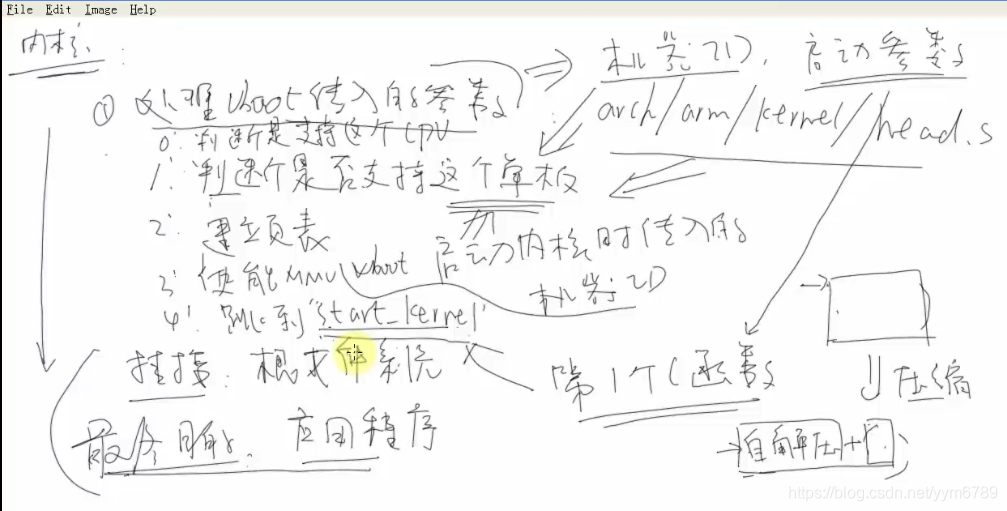 File Edit Image Help
内核:
① 处理uboot传入的参数 ⇒ 机器ID, 启动参数
arch/arm/kernel/head.s
0: 判断是否支持这个CPU
1: 判断是否支持这个单板
2: 建立页表
uboot 启动内核时传入的
机器ID
3: 使能MMU
4: 跳到"start_kernel"
第1个C函数
挂接: 根文件系统
压缩
最终目的: 应用程序
自解压+
https://blog.csdn.net/yym6789